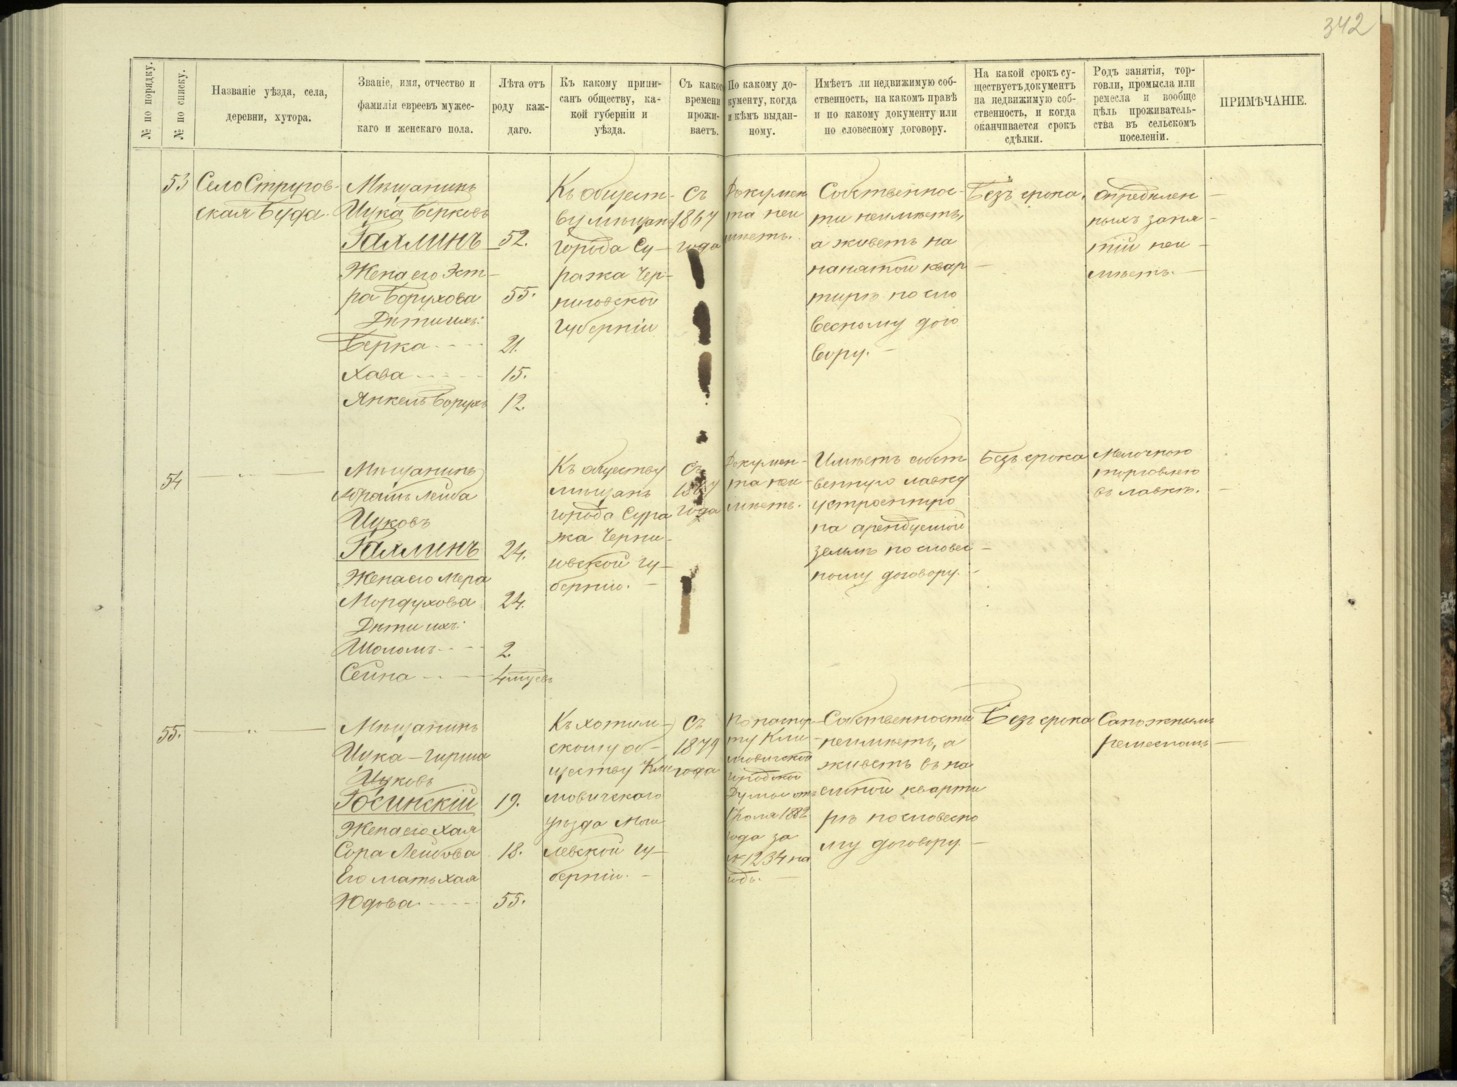 342
№ по порядку.
№ по списку.
Названіе уѣзда, села,
деревни, хутора.
Званіе, имя, отчество и
фамилія евреевъ мужес-
каго и женскаго пола.
Лѣта отъ
роду каж-
даго.
Къ какому припи-
санъ обществу, ка-
кой губерніи и
уѣзда.
Съ какого
времени
прожи-
ваетъ.
По какому до-
кументу, когда
и кѣмъ выдан-
ному.
Имѣетъ ли недвижимую соб-
ственность, на какомъ правѣ
и по какому документу или
по словесному договору.
На какой срокъ су-
ществуетъ документъ
на недвижимую соб-
ственность, и когда
оканчивается срокъ
сдѣлки.
Родъ занятія, тор-
говли, промысла или
ремесла и вообще
цѣль проживатель-
ства въ сельскомъ
поселеніи.
ПРИМѢЧАНІЕ.
53
Село Стругов-
ская Буда
Мѣщанинъ
Цука Берковъ
Галлинъ 52.
Жена его Эст-
ра Борухова 55.
Дѣти ихъ:
Берка 21.
Хава 15.
Янкель Борухъ 12.
Къ общест-
ву мѣщанъ
города Су-
ража Чер-
ниговской
губерніи
Съ
1867
года
Докумен
та неи
мѣетъ.
Собственнос-
ти неимѣетъ,
а живетъ на
нанятой квар
тирѣ по сло
весному дого
вору.
Безъ срока,
Опредѣлен-
ныхъ заня-
тій неи-
мѣетъ.
54
Мѣщанинъ
Лейба
Цуковъ
Галлинъ 24.
Жена его Мера
Мордухова 24.
Дѣти ихъ:
Шоломъ 2
Сейна 4 мѣсяц
Къ обществу
мѣщанъ
города Сура
жа Черни-
говской гу-
берніи.
Съ
1867
года
Докумен-
та неи-
мѣетъ.
Имѣетъ собст
венную лавку
устроенную
на арендуемой
землѣ по словес-
ному договору.
Безъ срока
Мелочною
торговлею
въ лавкѣ.
55.
Мѣщанинъ
Цука-Гирша
Цуковъ
Госинскій 19.
Жена его Хая
Сора Лейбова 18.
Его мать Хая
Юдова 55.
Къ хотим-
скому об-
ществу Кли
мовичскаго
уѣзда Моги
левской гу-
берніи.
Съ
1879
года
По паспор-
ту Кли-
мовичской
городской
Думы отъ
Іюля 1882
года за
№ 1234 на
годъ.
Собственности
неимѣетъ, а
живетъ въ на
емной кварти
рѣ по словесно
му договору
Безъ срока
Сапожнымъ
ремесломъ